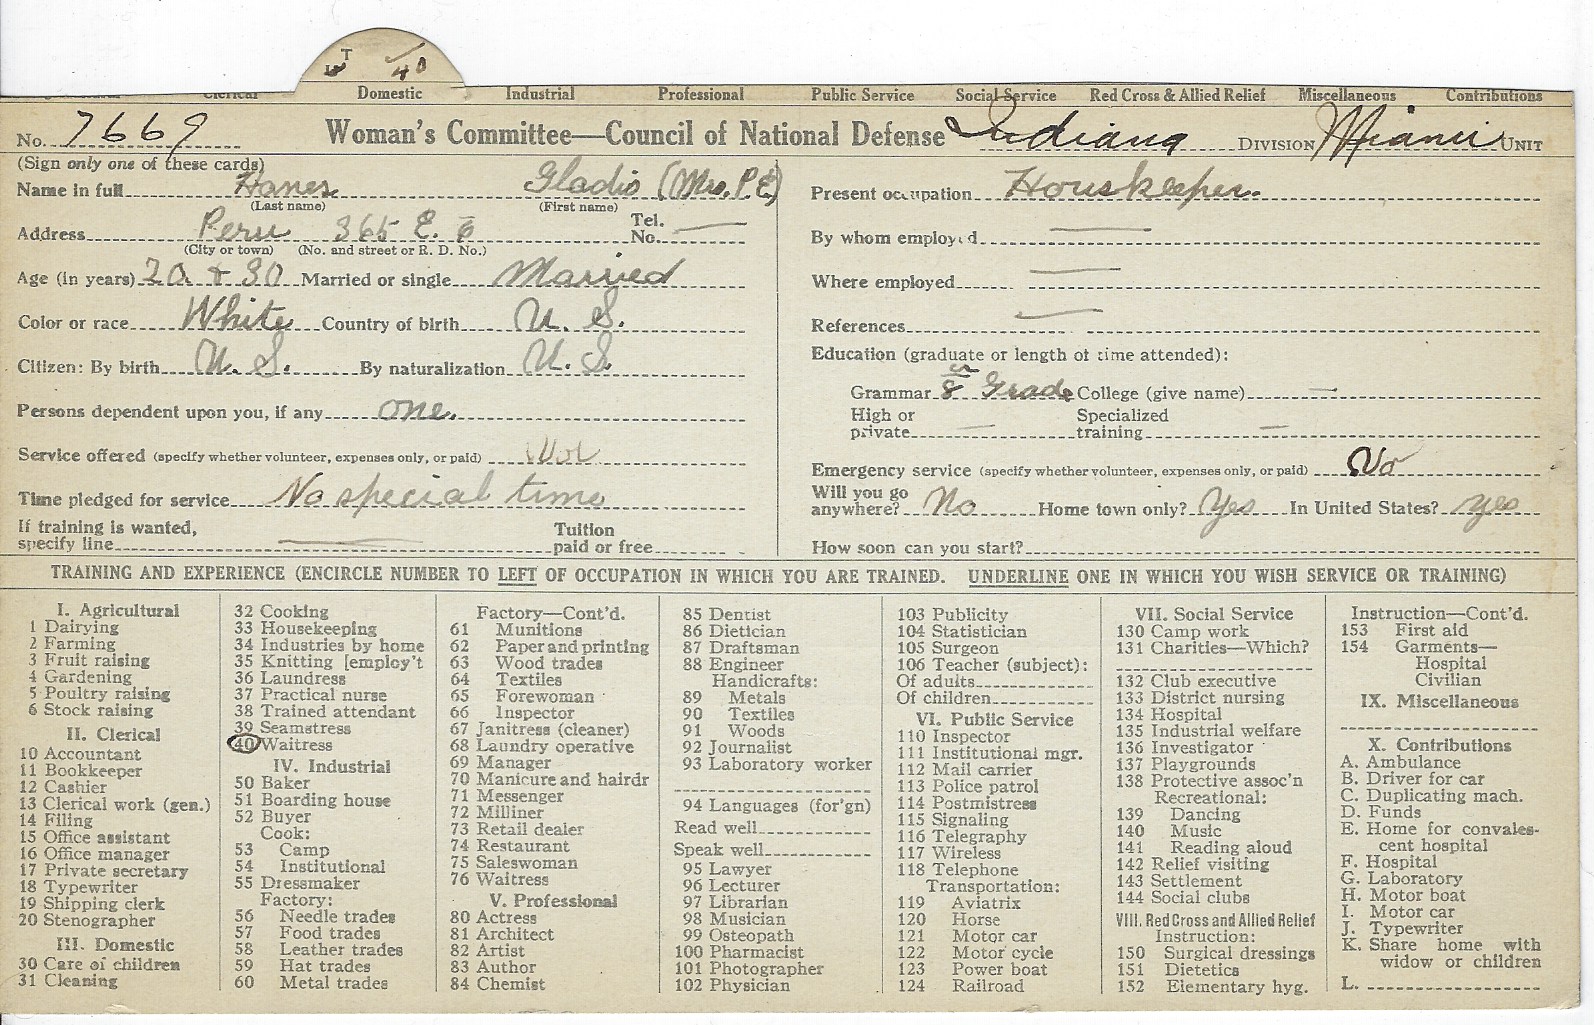 T
40
Clerical Domestic Industrial Professional Public Service Social Service Red Cross & Allied Relief Miscellaneous Contributions
No. 7669 Woman's Committee—Council of National Defense Indiana DIVISION Miami UNIT
(Sign only one of these cards)
Name in full Hanes Gladis (Mrs. P.E.)
(Last name) (First name)
Address Peru 365 E. 6 Tel. No. —
(City or town) (No. and street or R. D. No.)
Age (in years) 20 + 30 Married or single Married
Color or race White Country of birth U. S.
Citizen: By birth U. S. By naturalization U. S.
Persons dependent upon you, if any one.
Service offered (specify whether volunteer, expenses only, or paid) Vol
Time pledged for service No special time
If training is wanted,
specify line — Tuition
paid or free
Present occupation Houskeeper.
By whom employed —
Where employed —
References —
Education (graduate or length of time attended):
Grammar 8 Grade College (give name) —
High or
private — Specialized
training —
Emergency service (specify whether volunteer, expenses only, or paid) Vo
Will you go
anywhere? No Home town only? Yes In United States? yes
How soon can you start?
TRAINING AND EXPERIENCE (ENCIRCLE NUMBER TO LEFT OF OCCUPATION IN WHICH YOU ARE TRAINED. UNDERLINE ONE IN WHICH YOU WISH SERVICE OR TRAINING)
I. Agricultural
1 Dairying
2 Farming
3 Fruit raising
4 Gardening
5 Poultry raising
6 Stock raising
II. Clerical
10 Accountant
11 Bookkeeper
12 Cashier
13 Clerical work (gen.)
14 Filing
15 Office assistant
16 Office manager
17 Private secretary
18 Typewriter
19 Shipping clerk
20 Stenographer
III. Domestic
30 Care of children
31 Cleaning
32 Cooking
33 Housekeeping
34 Industries by home
35 Knitting [employ't
36 Laundress
37 Practical nurse
38 Trained attendant
39 Seamstress
40 Waitress
IV. Industrial
50 Baker
51 Boarding house
52 Buyer
Cook:
53 Camp
54 Institutional
55 Dressmaker
Factory:
56 Needle trades
57 Food trades
58 Leather trades
59 Hat trades
60 Metal trades
Factory—Cont'd.
61 Munitions
62 Paper and printing
63 Wood trades
64 Textiles
65 Forewoman
66 Inspector
67 Janitress (cleaner)
68 Laundry operative
69 Manager
70 Manicure and hairdr
71 Messenger
72 Milliner
73 Retail dealer
74 Restaurant
75 Saleswoman
76 Waitress
V. Professional
80 Actress
81 Architect
82 Artist
83 Author
84 Chemist
85 Dentist
86 Dietician
87 Draftsman
88 Engineer
Handicrafts:
89 Metals
90 Textiles
91 Woods
92 Journalist
93 Laboratory worker
94 Languages (for'gn)
Read well
Speak well
95 Lawyer
96 Lecturer
97 Librarian
98 Musician
99 Osteopath
100 Pharmacist
101 Photographer
102 Physician
103 Publicity
104 Statistician
105 Surgeon
106 Teacher (subject):
Of adults
Of children
VI. Public Service
110 Inspector
111 Institutional mgr.
112 Mail carrier
113 Police patrol
114 Postmistress
115 Signaling
116 Telegraphy
117 Wireless
118 Telephone
Transportation:
119 Aviatrix
120 Horse
121 Motor car
122 Motor cycle
123 Power boat
124 Railroad
VII. Social Service
130 Camp work
131 Charities—Which?
132 Club executive
133 District nursing
134 Hospital
135 Industrial welfare
136 Investigator
137 Playgrounds
138 Protective assoc'n
Recreational:
139 Dancing
140 Music
141 Reading aloud
142 Relief visiting
143 Settlement
144 Social clubs
VIII. Red Cross and Allied Relief
Instruction:
150 Surgical dressings
151 Dietetics
152 Elementary hyg.
Instruction—Cont'd.
153 First aid
154 Garments—
Hospital
Civilian
IX. Miscellaneous
X. Contributions
A. Ambulance
B. Driver for car
C. Duplicating mach.
D. Funds
E. Home for convales-
cent hospital
F. Hospital
G. Laboratory
H. Motor boat
I. Motor car
J. Typewriter
K. Share home with
widow or children
L.